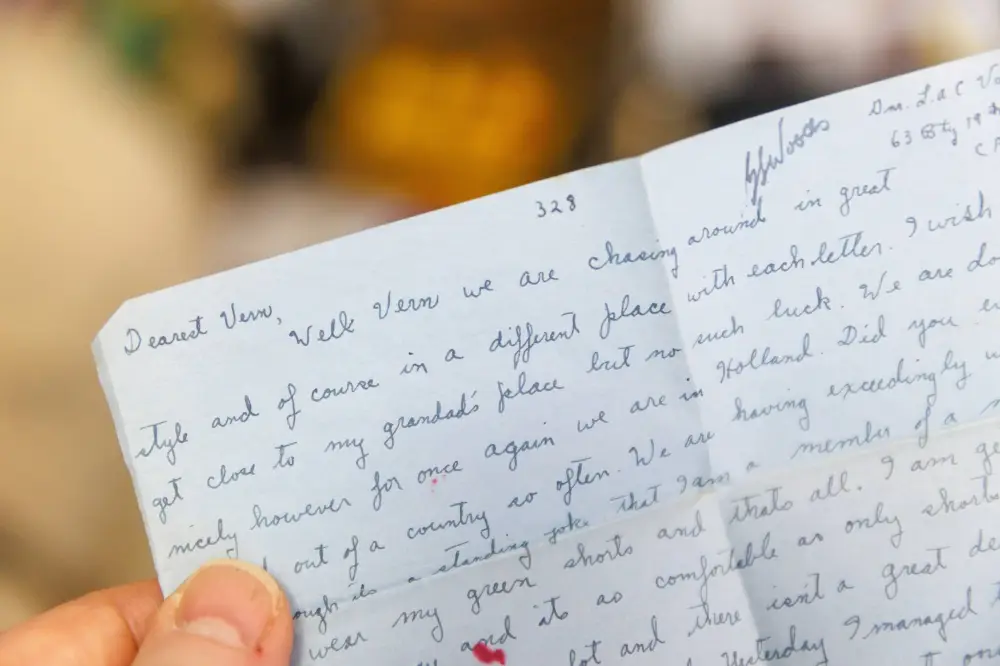 328
Woods
63 Bty 19
Dearest Vern,
Well Vern we are chasing around in great
style and of course in a different place with each letter. I wish
get close to my grandad's place but no such luck. We are
nicely however for once again we are in Holland. Did you
out of a country so often. We are having exceedingly
its a standing joke that I am a member of a
wear my green shorts and thats all. I am
and its as comfortable as only shorts
and there isn't a great
Yesterday I managed